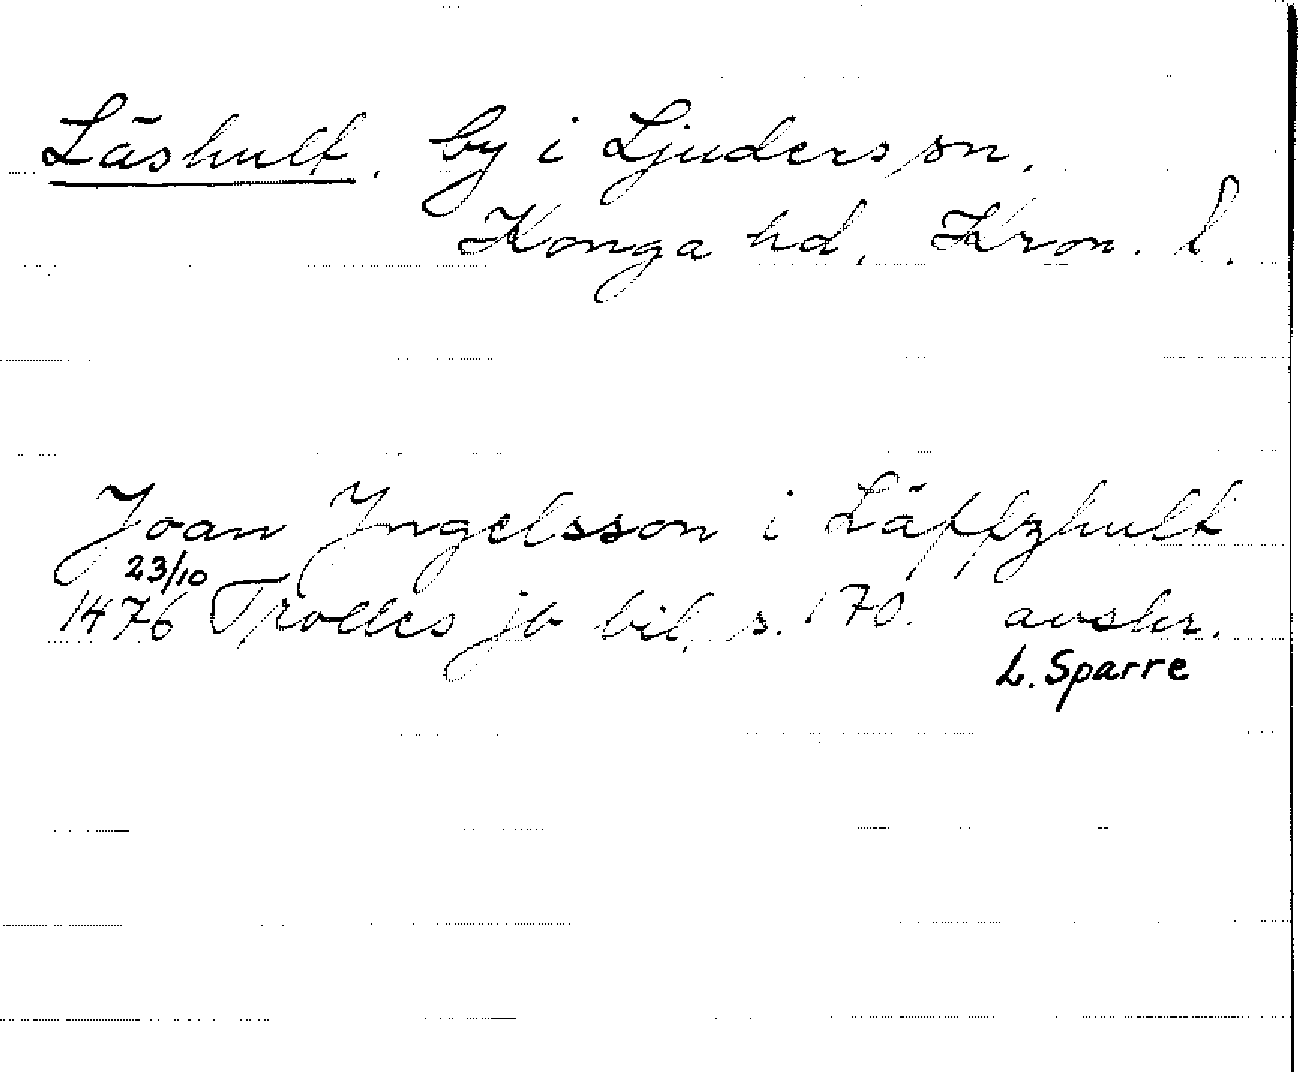 Läshult. by i Ljuders sn.
Konga hd. Kron. l.
Joan Ingelsson i Läffzhult
23/10
1476 Trolles jb bil, s. 170. avskr.
L. Sparre